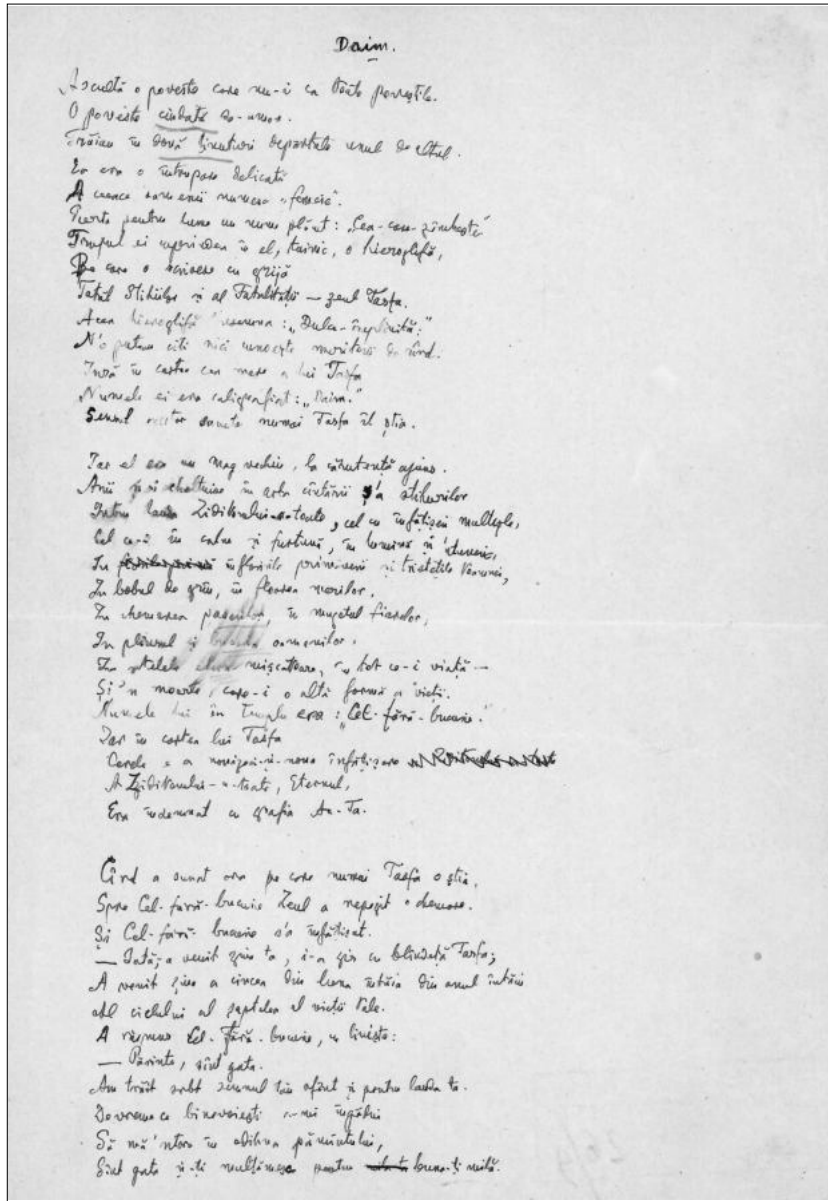 Daim.
Ascultă o poveste care nu-i ca toate poveștile.
O poveste ciudată
Trăiau în două ținuturi depărtate unul de altul.
Ea era o întrupare delicată
A ceeace oamenii numesc „femeie".
Purta pentru lume un nume plănt: „Cea-care-zâmbește"
Trupul ei cuprindea în el, tainic, o hieroglifă,
Pe care o scrisese cu grijă
Tatăl Stihiilor și al Fatalității — zeul Tasfa.
Acea hieroglifă însemna: „Dulce-împlinită."
N'o putea citi nici cunoaște muritorii de rând.
Însă în cartea cea mare a lui Tasfa
Numele ei era caligrafiat: „Daim."
Sensul acestor sunete numai Tasfa îl știa.
Iar el era un mag vechiu, la căruntețe ajuns.
Anii și-i cheltuise în arta cântării ș'a stihurilor
Întru lauda Ziditorului-a-toate, cel cu înfățișeri multiple,
Cel ce-i în calm și furtună, în lumină și 'ntuneric,
În înfloririle primăverii și tristețile toamnei,
În bobul de grâu, în floarea
În chemarea paserilor, în mugetul fiarelor,
În plânsul și oamenilor.
În mișcătoare, în tot ce-i viață —
Și'n moarte, care-i o altă formă a vieții.
Numele lui în Templu era: „Cel-fără-bucurie."
Iar în cartea lui Tasfa
Cerele a noua înfățișare
A Ziditorului-a-toate, Eternul,
Era însemnat cu grafia An-Ta.
Când a sunat ora pe care numai Tasfa o știa,
Spre Cel-fără-bucurie Zeul a repezit o chemare.
Și Cel-fără-bucurie s'a înfățișat.
— Iată, a venit ziua ta, i-a zis cu blândeță Tasfa;
A venit ziua a cincea din luna întâia din anul întâiu
Al ciclului al șaptelea al vieții tale.
A răspuns Cel-fără-bucurie, cu liniște:
— Părinte, sînt gata.
Am trăit subt semnul tău sfânt și pentru lauda ta.
De vreme ce binevoiești a-mi îngădui
Să mă 'ntorc în odihna pământului,
Sînt gata și-ți mulțămesc pentru buna-ți milă.